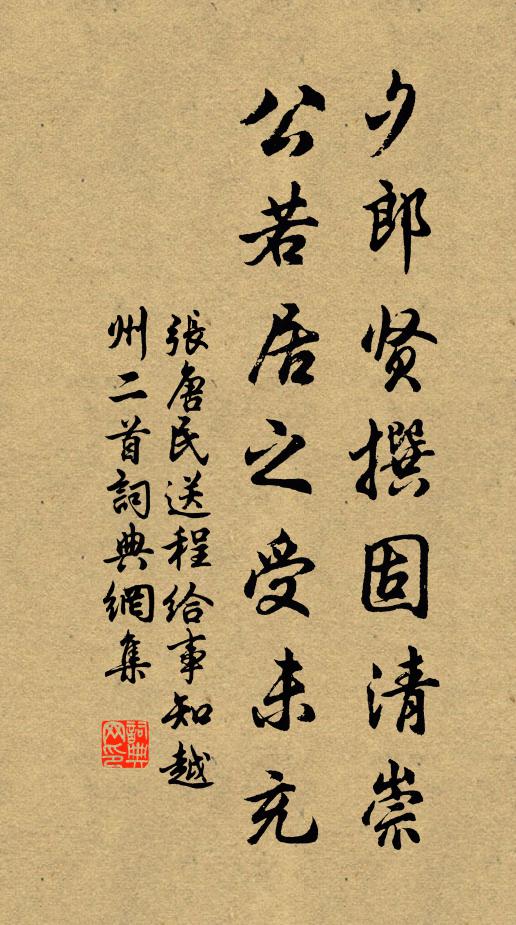 夕郎贤撰固清崇
公若居之受未充
張唐民送程给事知越
州二首詞典網集
詞典网印